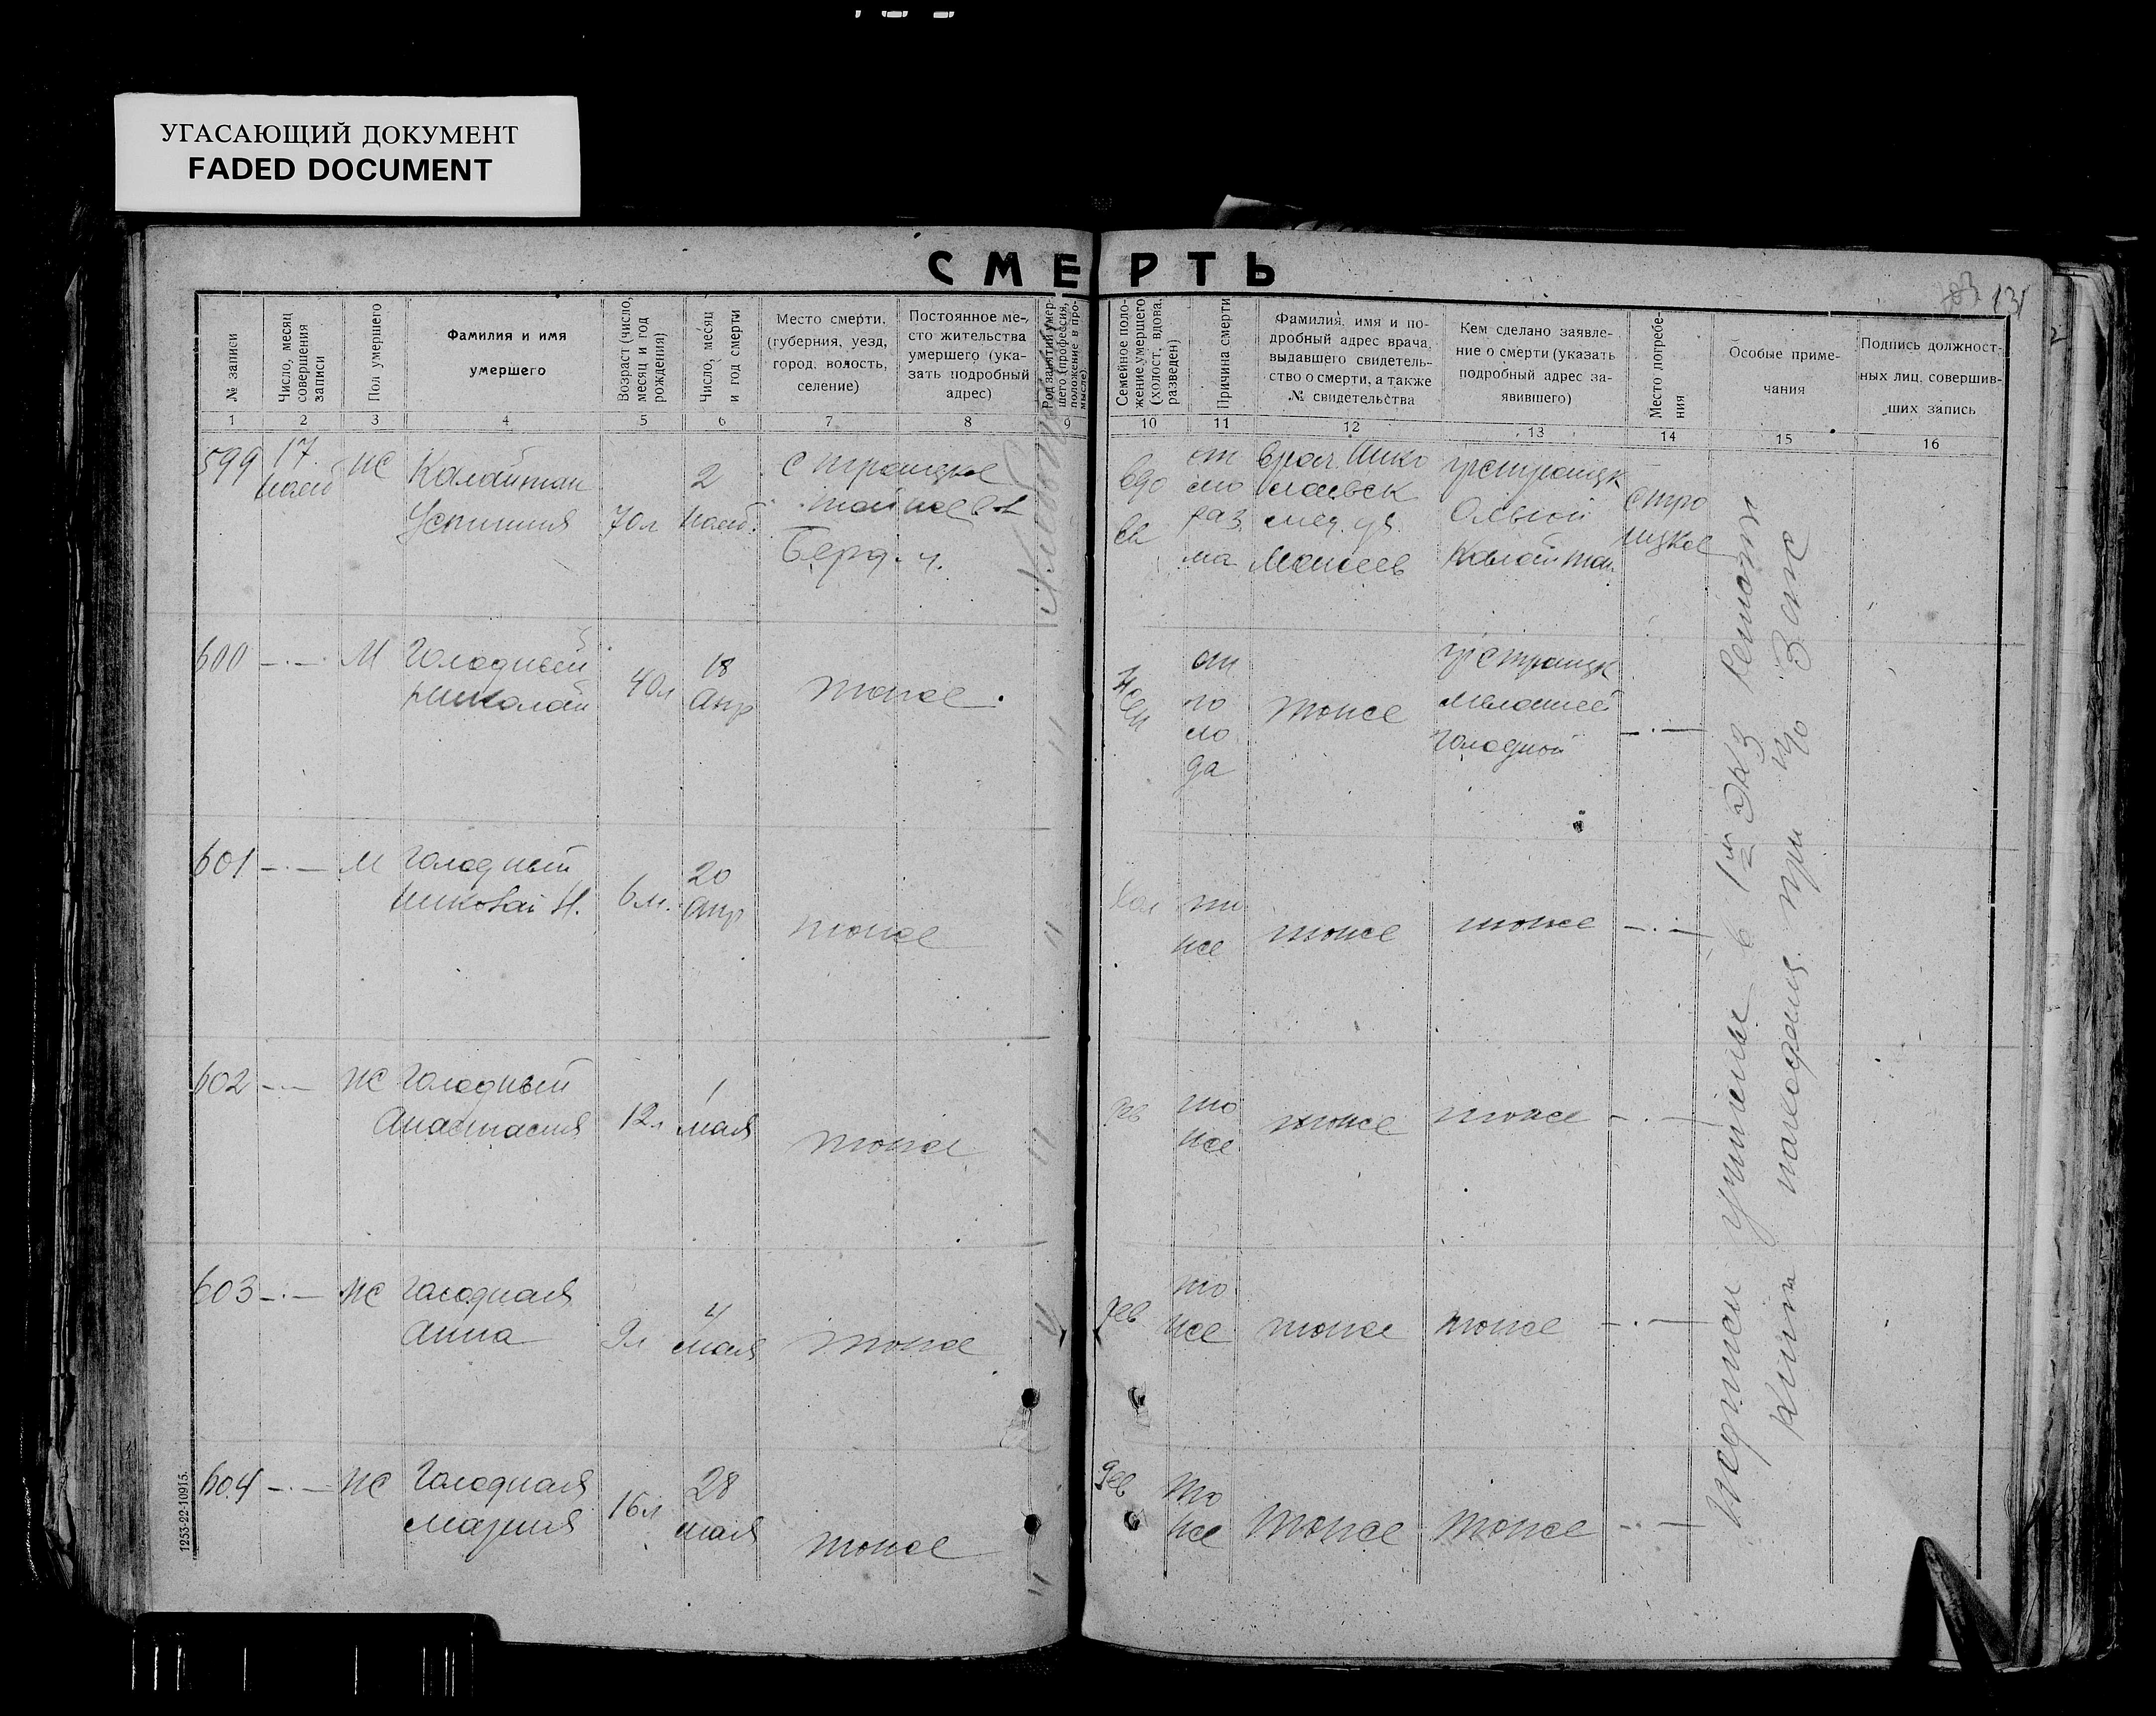 УГАСАЮЩИЙ ДОКУМЕНТ
FADED DOCUMENT
СМЕРТЬ
131
№ записи
Число, месяц
совершения
записи
Пол умершего
Фамилия и имя
умершего
Возраст (число,
месяц и год
рождения)
Число, месяц
и год смерти
Место смерти,
(губерния, уезд,
город, волость,
селение)
Постоянное ме-
сто жительства
умершего (ука-
зать подробный
адрес)
Род занятий умер-
шего (профессия,
положение в про-
мысле)
Семейное поло-
жение умершего
(холост, вдова,
разведен)
Причина смерти
Фамилия, имя и по-
дробный адрес врача,
выдавшего свидетель-
ство о смерти, а также
№ свидетельства
Кем сделано заявле-
ние о смерти (указать
подробный адрес за-
явившего)
Место погребе-
ния
Особые приме-
чания
Подпись должност-
ных лиц, совершив-
ших запись
1 2 3 4 5 6 7 8 9 10 11 12 13 14 15 16
599
17
нояб
ж
Калайтан
Устиния
70 л
2
нояб.
с Троицкое
Берд.
вдо
ва
от
мо
раз
ма
врач
Моисеев
Ольгой
Калайтан
с Тро
ицкое
600 -·- М
Голодный
Николай
40 л
18
апр
тоже
жен
от
го
ло
да
тоже
Меланией
Голодной
-·-
601 -·- М
Голодный
Николай Н.
6 м.
20
апр
тоже
хол
то
же
тоже
тоже
-·-
602 -·- ж
Голодный
Анастасия
12 л
1
мая
тоже
дев
то
же
тоже
тоже
-·-
603 -·- ж
Голодная
Анна
9 л
4
мая
тоже
дев
то
же
тоже
тоже
-·-
604 -·- ж
Голодная
Мария
16 л
28
мая
тоже
дев
то
же
тоже
тоже
-·-
Подписи учинены в 1м экз
книги находящ. при Загс
1253-22-10915.